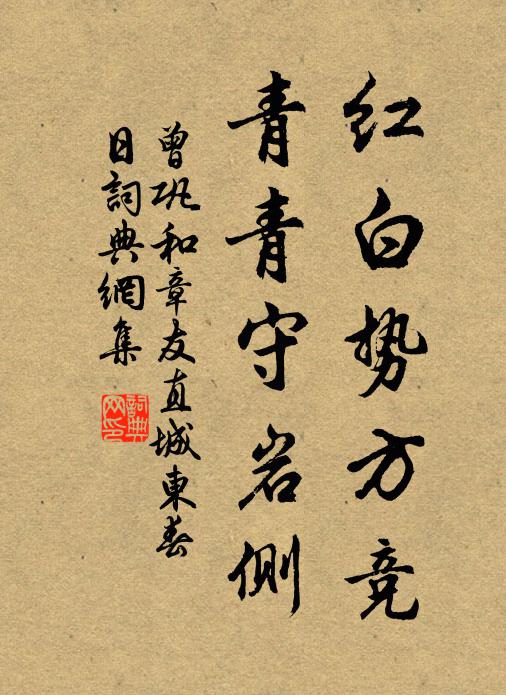 红白势方竞
青青守岩侧
曾巩和章友直城東春
日詞典網集
詞典
网印